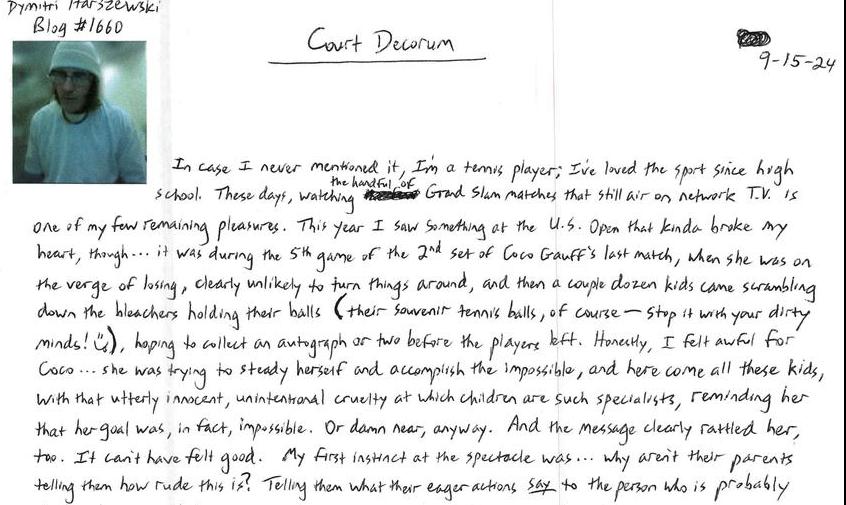 Dymitri Harszewski
Blog #1660
Court Decorum
9-15-24
In case I never mentioned it, I'm a tennis player; I've loved the sport since high
school. These days, watching the handful of Grad Slam matches that still air on network T.V. is
one of my few remaining pleasures. This year I saw something at the U.S. Open that kinda broke my
heart, though... it was during the 5th game of the 2nd set of Coco Gauff's last match, when she was on
the verge of losing, clearly unlikely to turn things around, and then a couple dozen kids came scrambling
down the bleachers holding their balls (their souvenir tennis balls, of course — stop it with your dirty
minds! ☺), hoping to collect an autograph or two before the players left. Honestly, I felt awful for
Coco... she was trying to steady herself and accomplish the impossible, and here come all these kids,
with that utterly innocent, unintentional cruelty at which children are such specialists, reminding her
that her goal was, in fact, impossible. Or damn near, anyway. And the message clearly rattled her,
too. It can't have felt good. My first instinct at the spectacle was... why aren't their parents
telling them how rude this is? Telling them what their eager actions say to the person who is probably